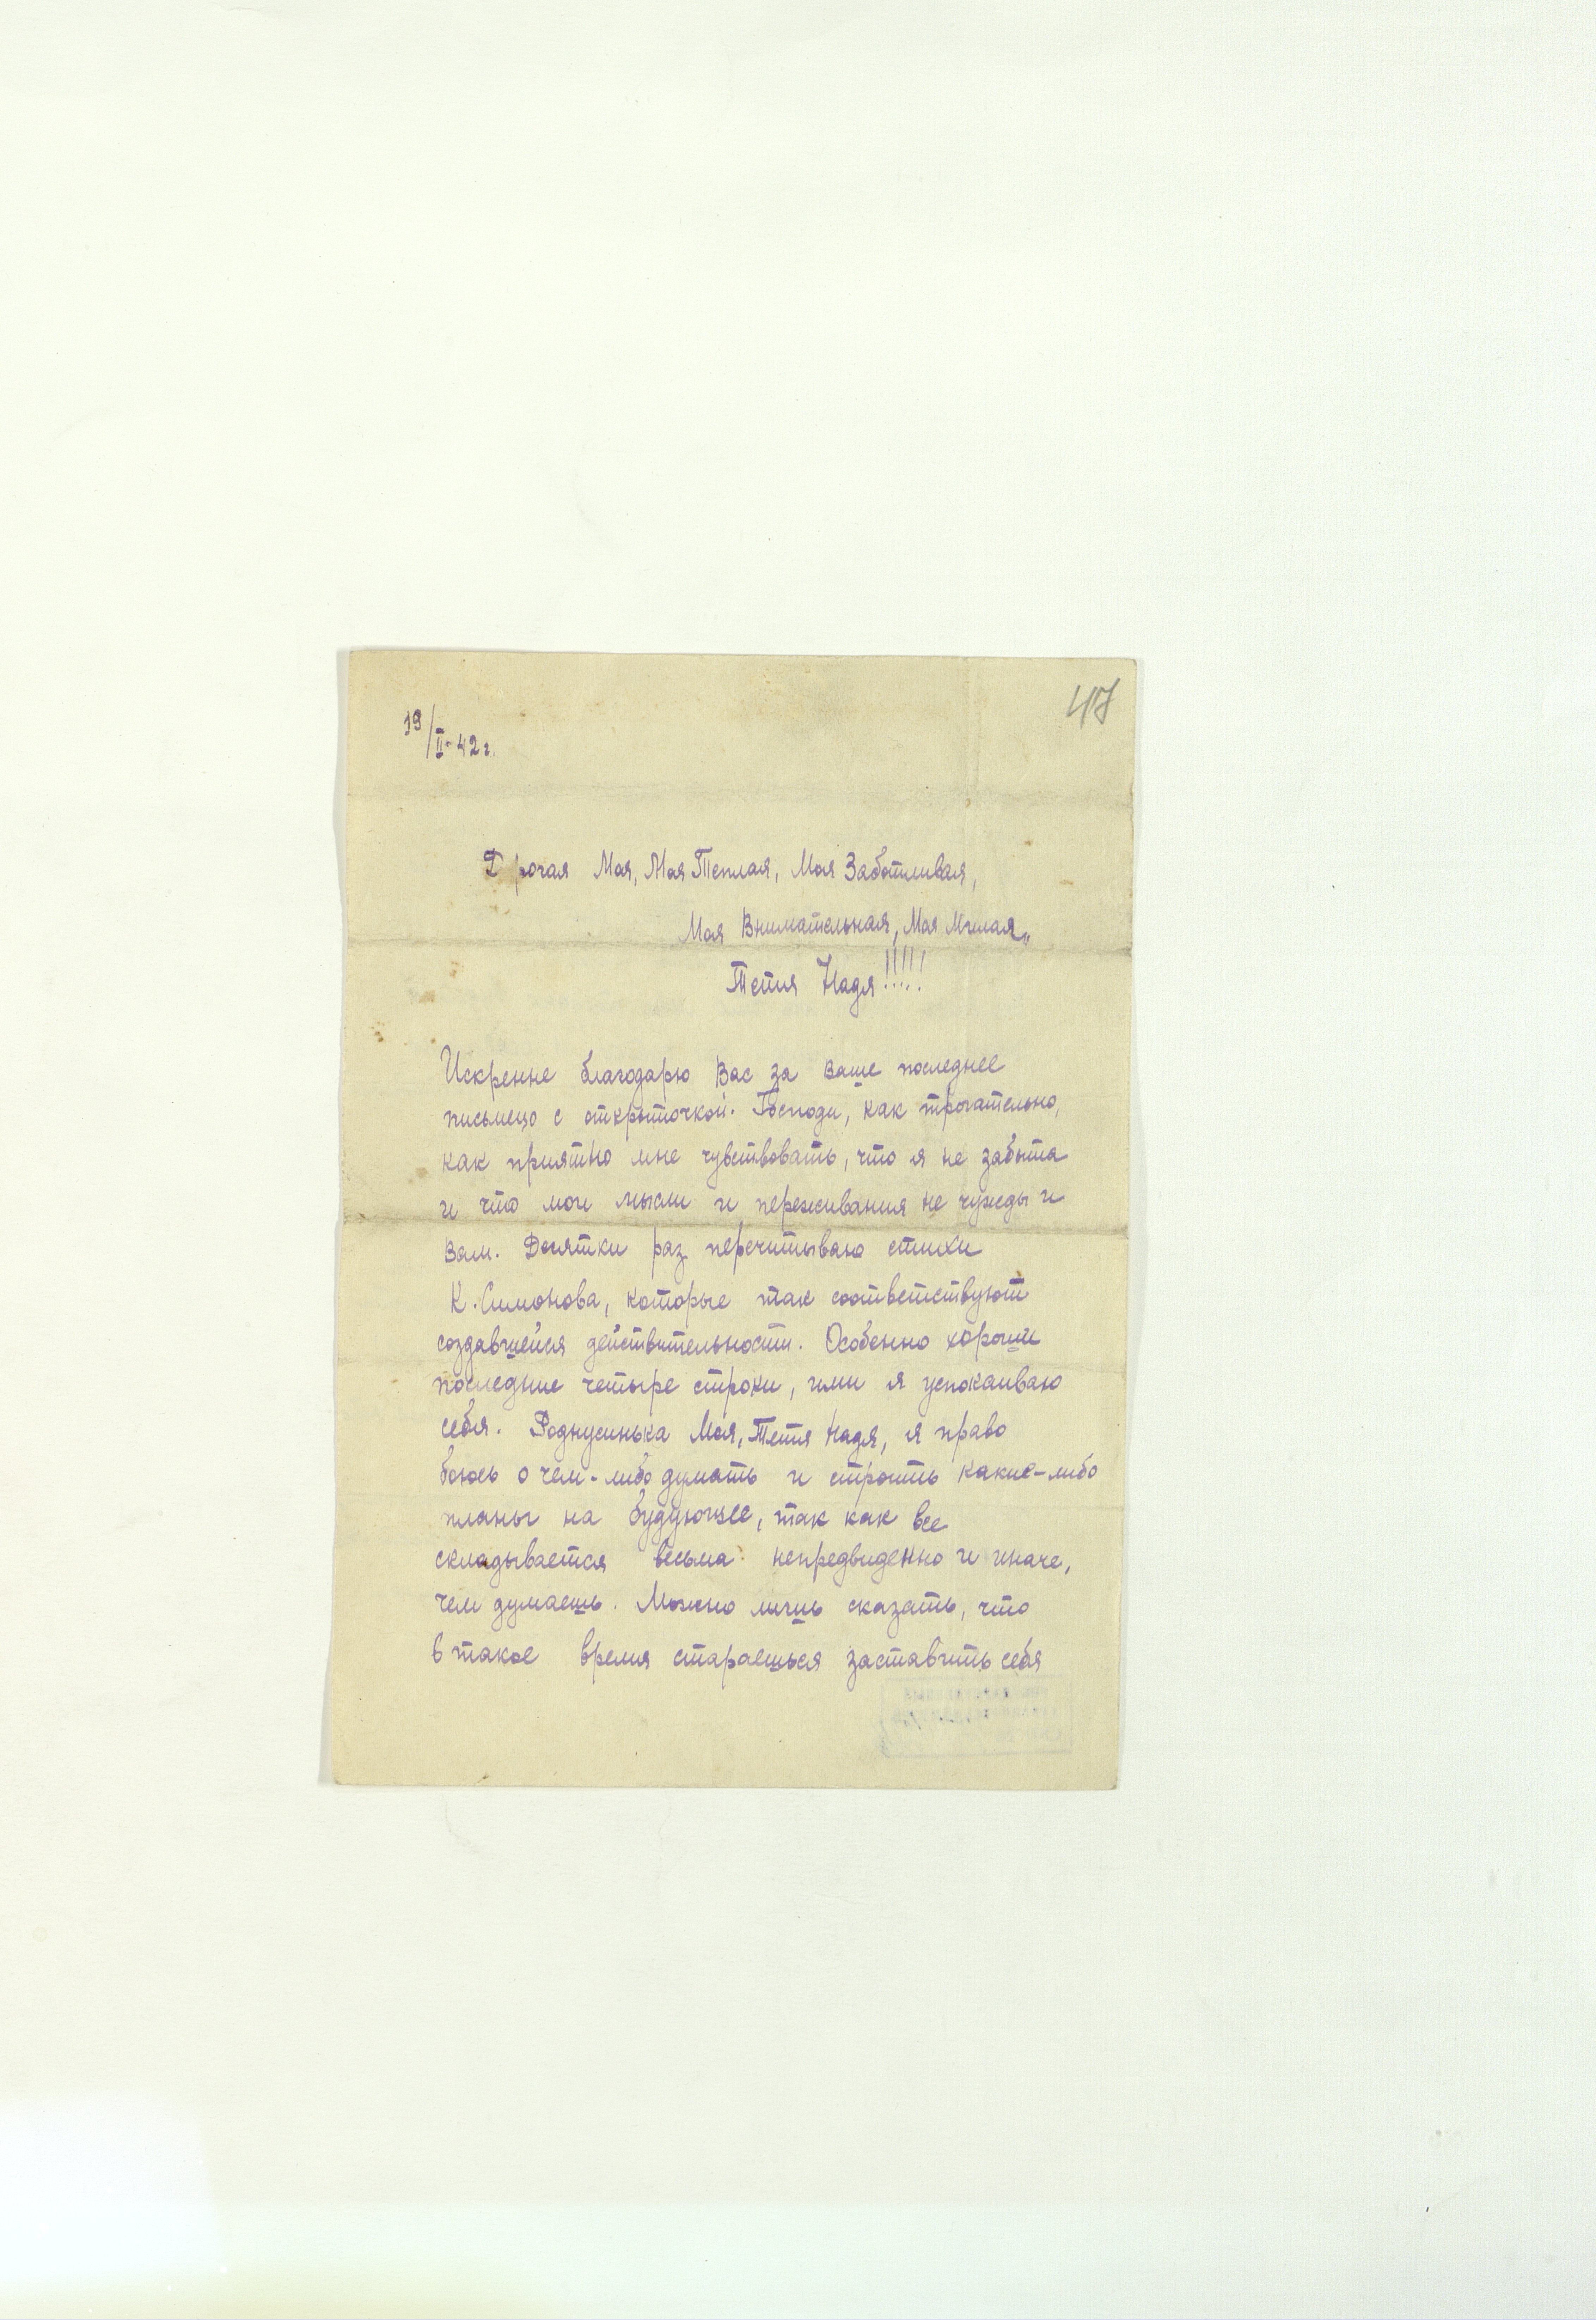 47
19/II-42 г.
Дорогая Моя, Моя Теплая, Моя Заботливая,
Моя Внимательная, Моя Милая,,
Тетя Надя!!!!!
Искренне благодарю Вас за ваше последнее
письмецо с открыточкой. Господи, как трогательно,
как приятно мне чувствовать, что я не забыта
и что мои мысли и переживания не чужды и
Вам. Десятки раз перечитываю стихи
К. Симонова, которые так соответствуют
создавшейся действительности. Особенно хороши
последние четыре строки, ими я успокаиваю
себя. Роднусинька Моя, Тетя Надя, я право
боюсь о чем-либо думать и строить какие-либо
планы на будующее, так как все
складывается весьма непредвиденно и иначе,
чем думаешь. Можно лишь сказать, что
в такое время стараешься заставить себя